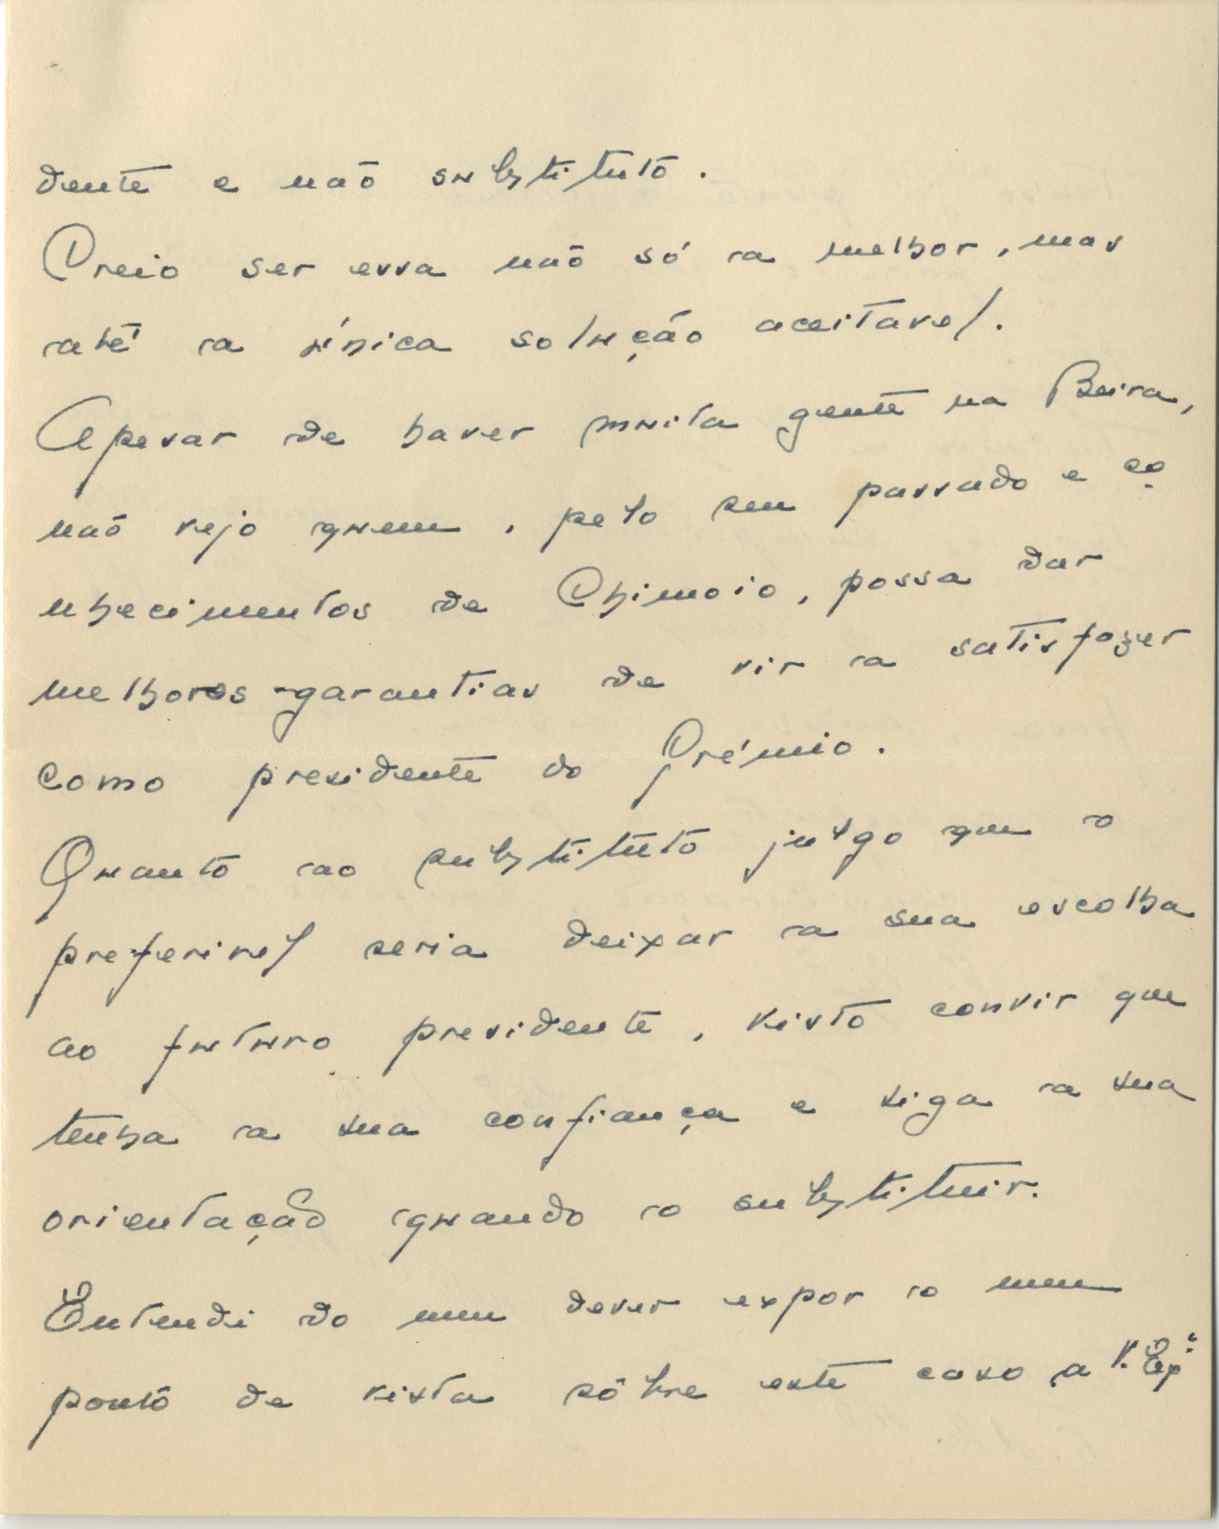 dente e não substituto.
Creio ser essa não só a melhor, mas
até a única solução aceitavel.
Apesar de haver muita gente na Beira,
não vejo quem, pelo seu passado e co
nhecimentos de Chimoio, possa dar
melhores garantias de vir a satisfazer
como presidente do Grémio.
Quanto ao substituto julgo que o
preferivel seria deixar a sua escolha
ao futuro presidente, visto convir que
tenha a sua confiança e siga a sua
orientação quando o substituir.
Entendi do meu dever expor o meu
ponto de vista sôbre este caso a V. Exª